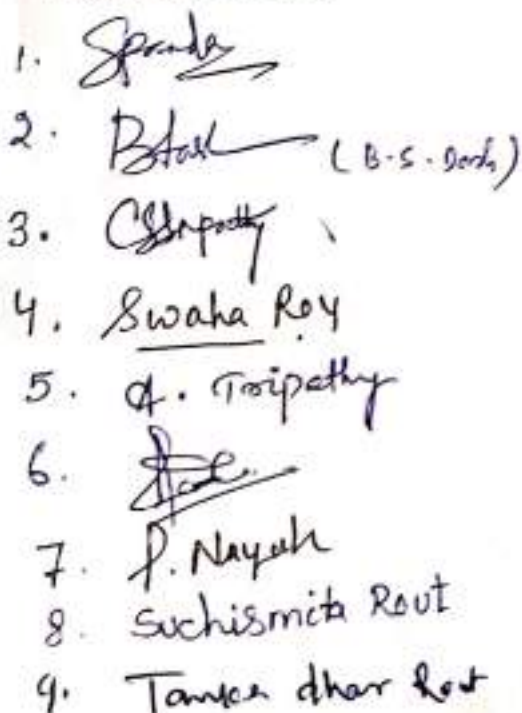 1. Spanda
2. BDash (B.S. Dash)
3. CSSatpathy
4. Swaha Roy
5. A. Tripathy
6.
7. P. Nayak
8. Suchismita Rout
9. dhar Rout